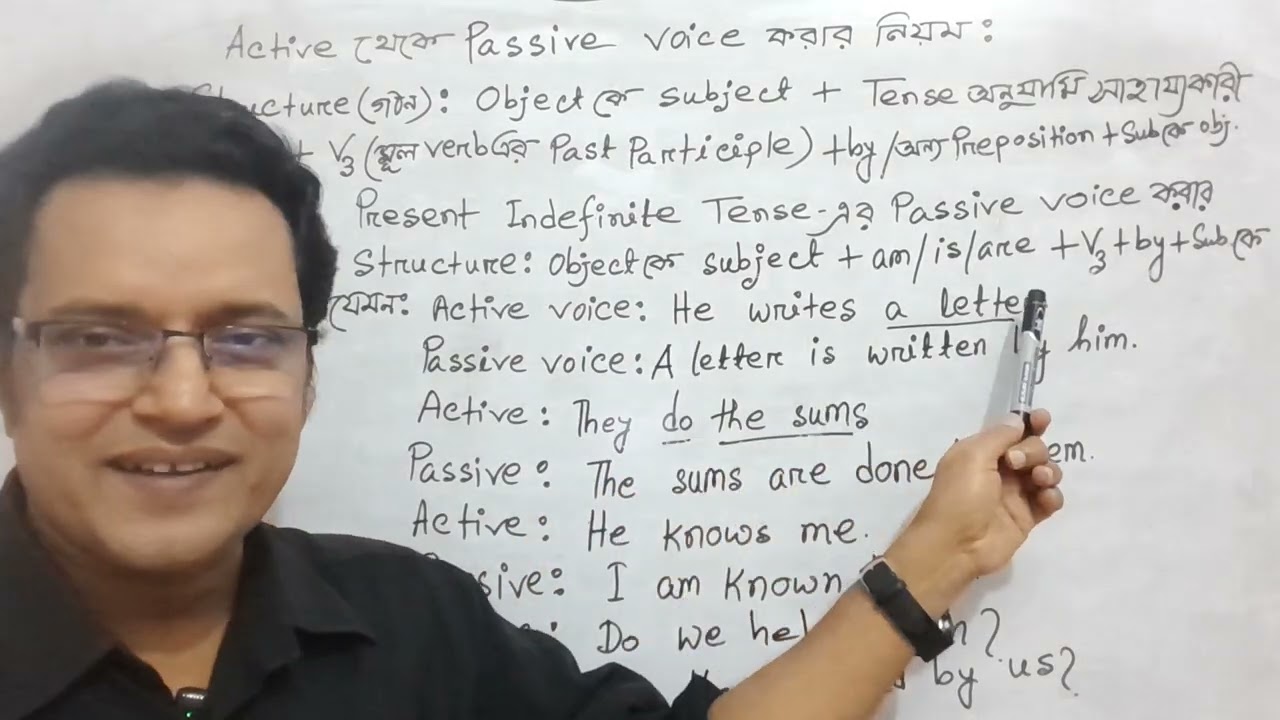 Active থেকে Passive voice করার নিয়ম :
Structure (গঠন) : Object কে subject + Tense অনুযায়ি সাহায্যকারী
+ V3 (মূল verb এর Past Participle) + by / অন্য Preposition + Sub কে obj.
Present Indefinite Tense-এর Passive voice করার
Structure : Object কে subject + am/is/are + V3 + by + Sub কে
যেমন : Active voice : He writes a letter
Passive voice : A letter is written by him.
Active : They do the sums
Passive : The sums are done
Active : He knows me.
Passive : I am known
Do we
by us?